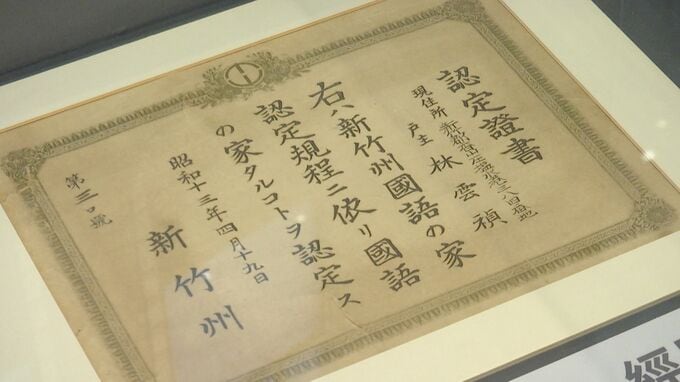 認定證書
現住所
戸主 林雲禎
右ハ新竹州國語の家
認定規程ニ依リ國語
の家タルコトヲ認定ス
昭和十三年四月十九日
新竹州
第三口號
經